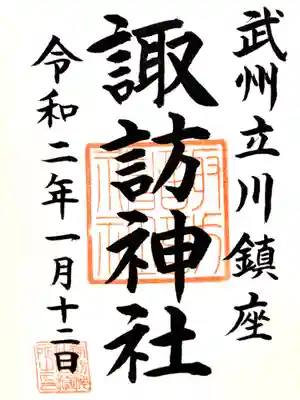 武州立川鎮座
諏訪神社
令和二年一月十二日